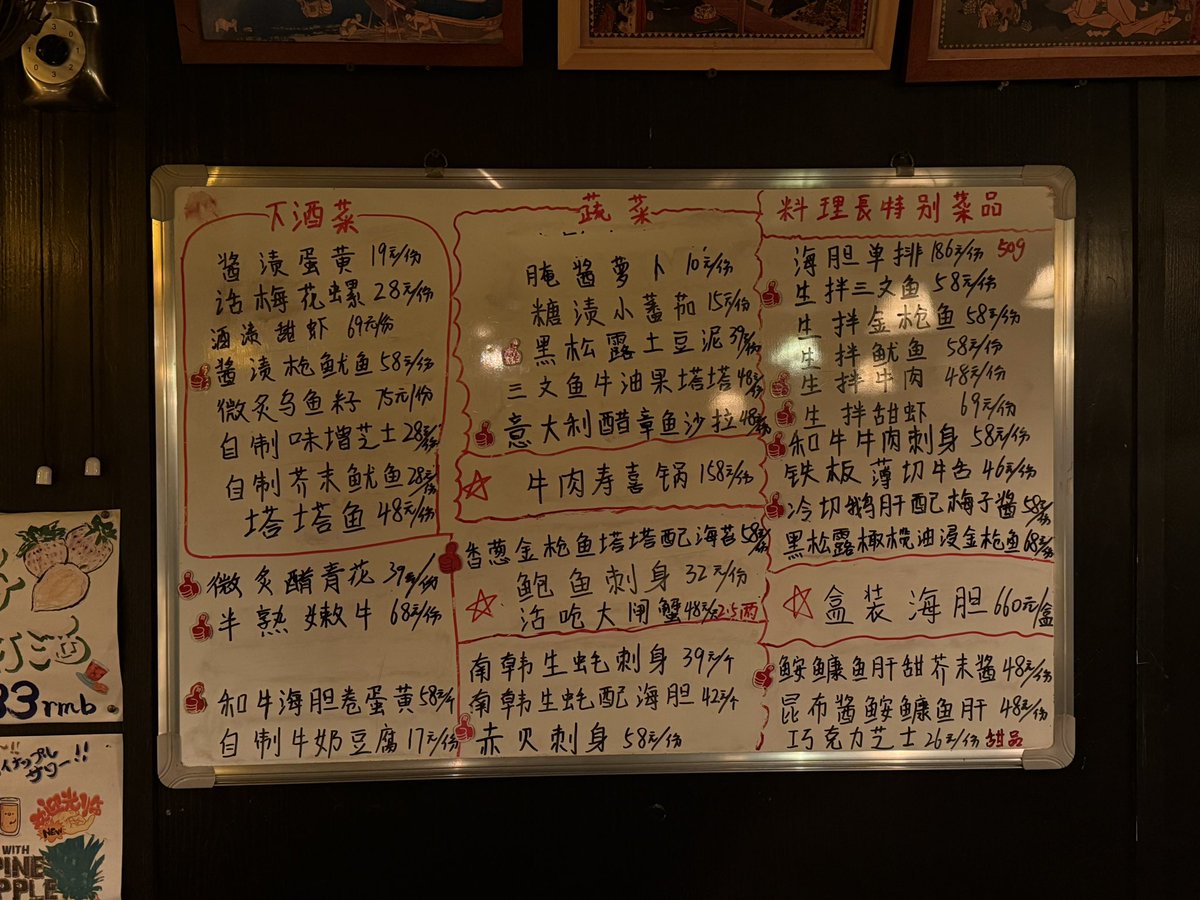 下酒菜
酱渍蛋黄 19元/份
话梅花螺 28元/份
酒渍甜虾 69元/份
酱渍枪鱿鱼 58元/份
微炙乌鱼籽 75元/份
自制味增芝士 28元/份
自制芥末鱿鱼 28元/份
塔塔鱼 48元/份
微炙醋青花 39元/份
半熟嫩牛 68元/份
和牛海胆卷蛋黄 58元/个
自制牛奶豆腐 17元/份
蔬菜
腌酱萝卜 10元/份
糖渍小蕃茄 15元/份
黑松露土豆泥 39元/份
三文鱼牛油果塔塔 48元/份
意大利醋章鱼沙拉 48元/份
牛肉寿喜锅 158元/份
香葱金枪鱼塔塔配海苔 58元/份
鲍鱼刺身 32元/份
活吃大闸蟹 48元/只 2.5两
南韩生蚝刺身 39元/个
南韩生蚝配海胆 42元/个
赤贝刺身 58元/份
料理長特别菜品
海胆单排 186元/份 50g
生拌三文鱼 58元/份
生拌金枪鱼 58元/份
生拌鱿鱼 58元/份
生拌牛肉 48元/份
生拌甜虾 69元/份
和牛牛肉刺身 58元/份
铁板薄切牛舌 46元/份
冷切鹅肝配梅子酱 58元/份
黑松露橄榄油浸金枪鱼 68元/份
盒装海胆 660元/盒
鮟鱇鱼肝甜芥末酱 48元/份
昆布酱鮟鱇鱼肝 48元/份
巧克力芝士 26元/份 甜品
83rmb
NEW
WITH
PINE
APPLE